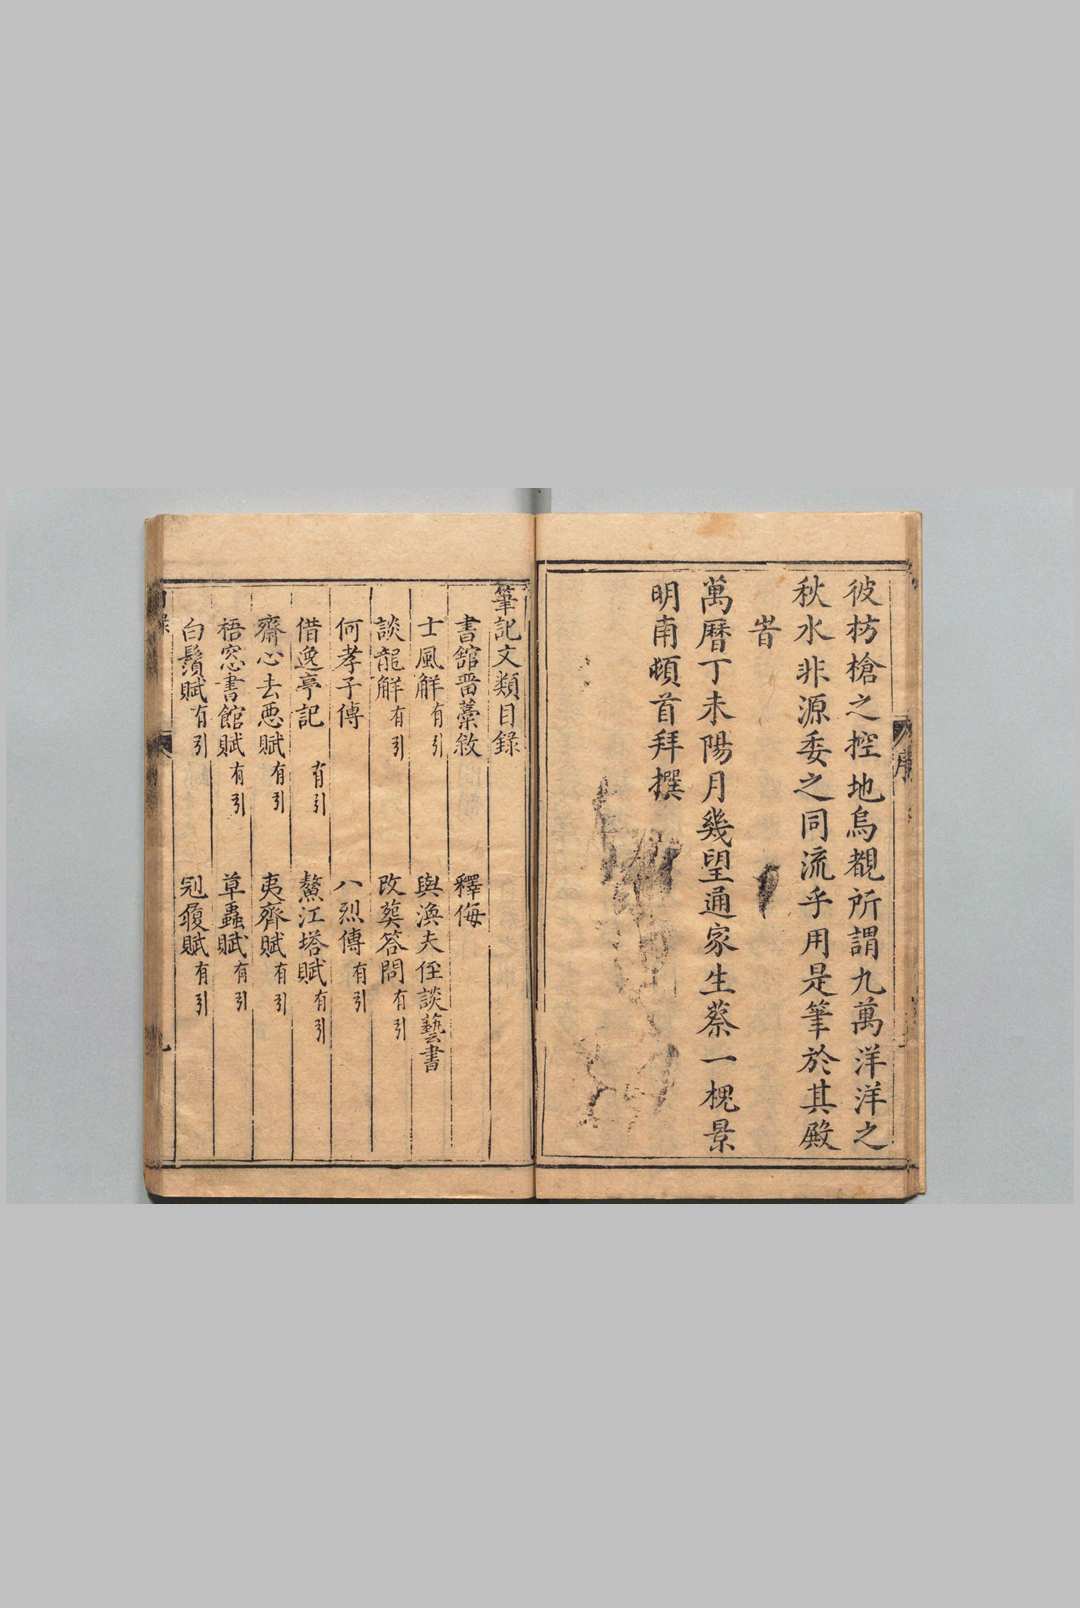 彼枋槍之控地烏覩所謂九萬洋洋之
秋水非源委之同流乎用是筆於其殿
旹
萬曆丁未陽月幾望通家生蔡一槐景
明甫頓首拜撰
序
筆記文類目錄
書舘畨藁敘
釋侮
士風解有引
與漁夫侄談藝書
談龍解有引
改葬答問有引
何孝子傳
八烈傳有引
借逸亭記有引
鰲江塔賦有引
齋心去惡賦有引
夷齊賦有引
梧窓書館賦有引
草蟲賦有引
白鬚賦有引
冠履賦有引